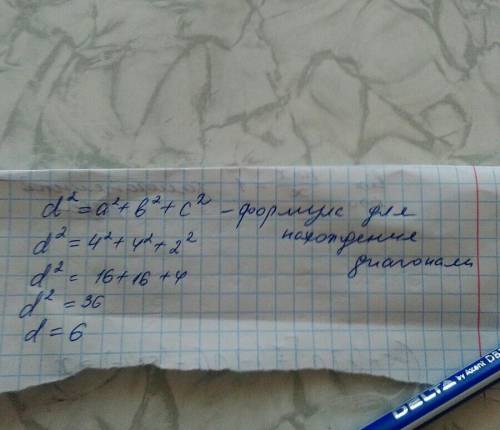 d² = a² + b² + c² – формула для
нахождения
диагонали
d² = 4² + 4² + 2²
d² = 16 + 16 + 4
d² = 36
d = 6
DELTA by Axent DB